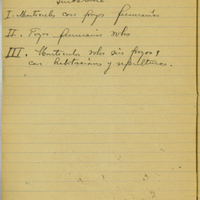 I. Montículos con fosos funerarios
II. Fosos funerarios solos
III. Montículos solos sin fosos y
con habitaciones y sepulturas.